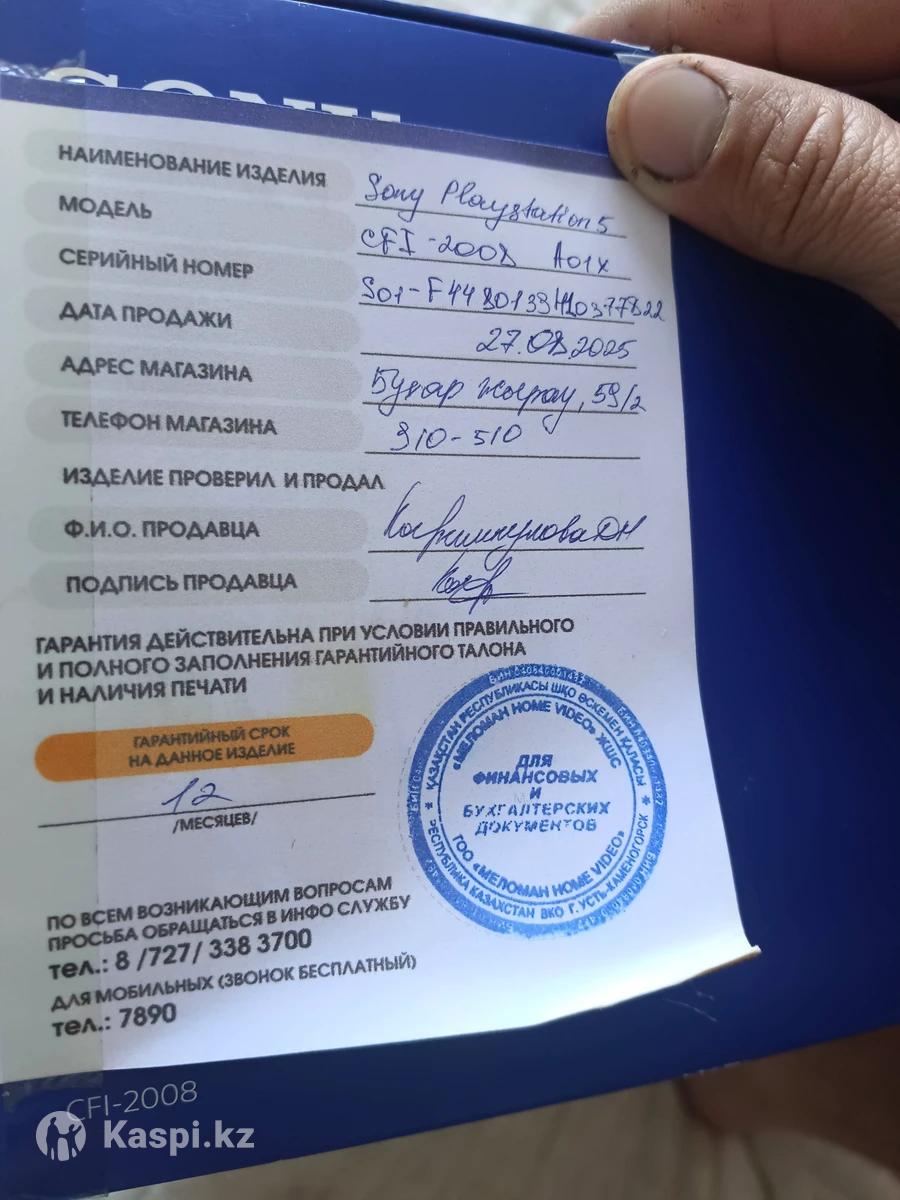 SONY
НАИМЕНОВАНИЕ ИЗДЕЛИЯ Sony Playstation 5
МОДЕЛЬ CFI-2008 A01X
СЕРИЙНЫЙ НОМЕР
ДАТА ПРОДАЖИ 27.08.2025
АДРЕС МАГАЗИНА Бухар жырау, 59/2
ТЕЛЕФОН МАГАЗИНА 910-510
ИЗДЕЛИЕ ПРОВЕРИЛ И ПРОДАЛ
Ф.И.О. ПРОДАВЦА
ПОДПИСЬ ПРОДАВЦА
ГАРАНТИЯ ДЕЙСТВИТЕЛЬНА ПРИ УСЛОВИИ ПРАВИЛЬНОГО
И ПОЛНОГО ЗАПОЛНЕНИЯ ГАРАНТИЙНОГО ТАЛОНА
И НАЛИЧИЯ ПЕЧАТИ
ГАРАНТИЙНЫЙ СРОК
НА ДАННОЕ ИЗДЕЛИЕ
12
/МЕСЯЦЕВ/
ҚАЗАҚСТАН РЕСПУБЛИКАСЫ ШҚО ӨСКЕМЕН ҚАЛАСЫ
«МЕЛОМАН HOME VIDEO» ЖШС
ДЛЯ
ФИНАНСОВЫХ
И
БУХГАЛТЕРСКИХ
ДОКУМЕНТОВ
ТОО «МЕЛОМАН HOME VIDEO»
РЕСПУБЛИКА КАЗАХСТАН ВКО Г. УСТЬ-КАМЕНОГОРСК
ПО ВСЕМ ВОЗНИКАЮЩИМ ВОПРОСАМ
ПРОСЬБА ОБРАЩАТЬСЯ В ИНФО СЛУЖБУ
тел.: 8 /727/ 338 3700
ДЛЯ МОБИЛЬНЫХ (ЗВОНОК БЕСПЛАТНЫЙ)
тел.: 7890
CFI-2008
Kaspi.kz